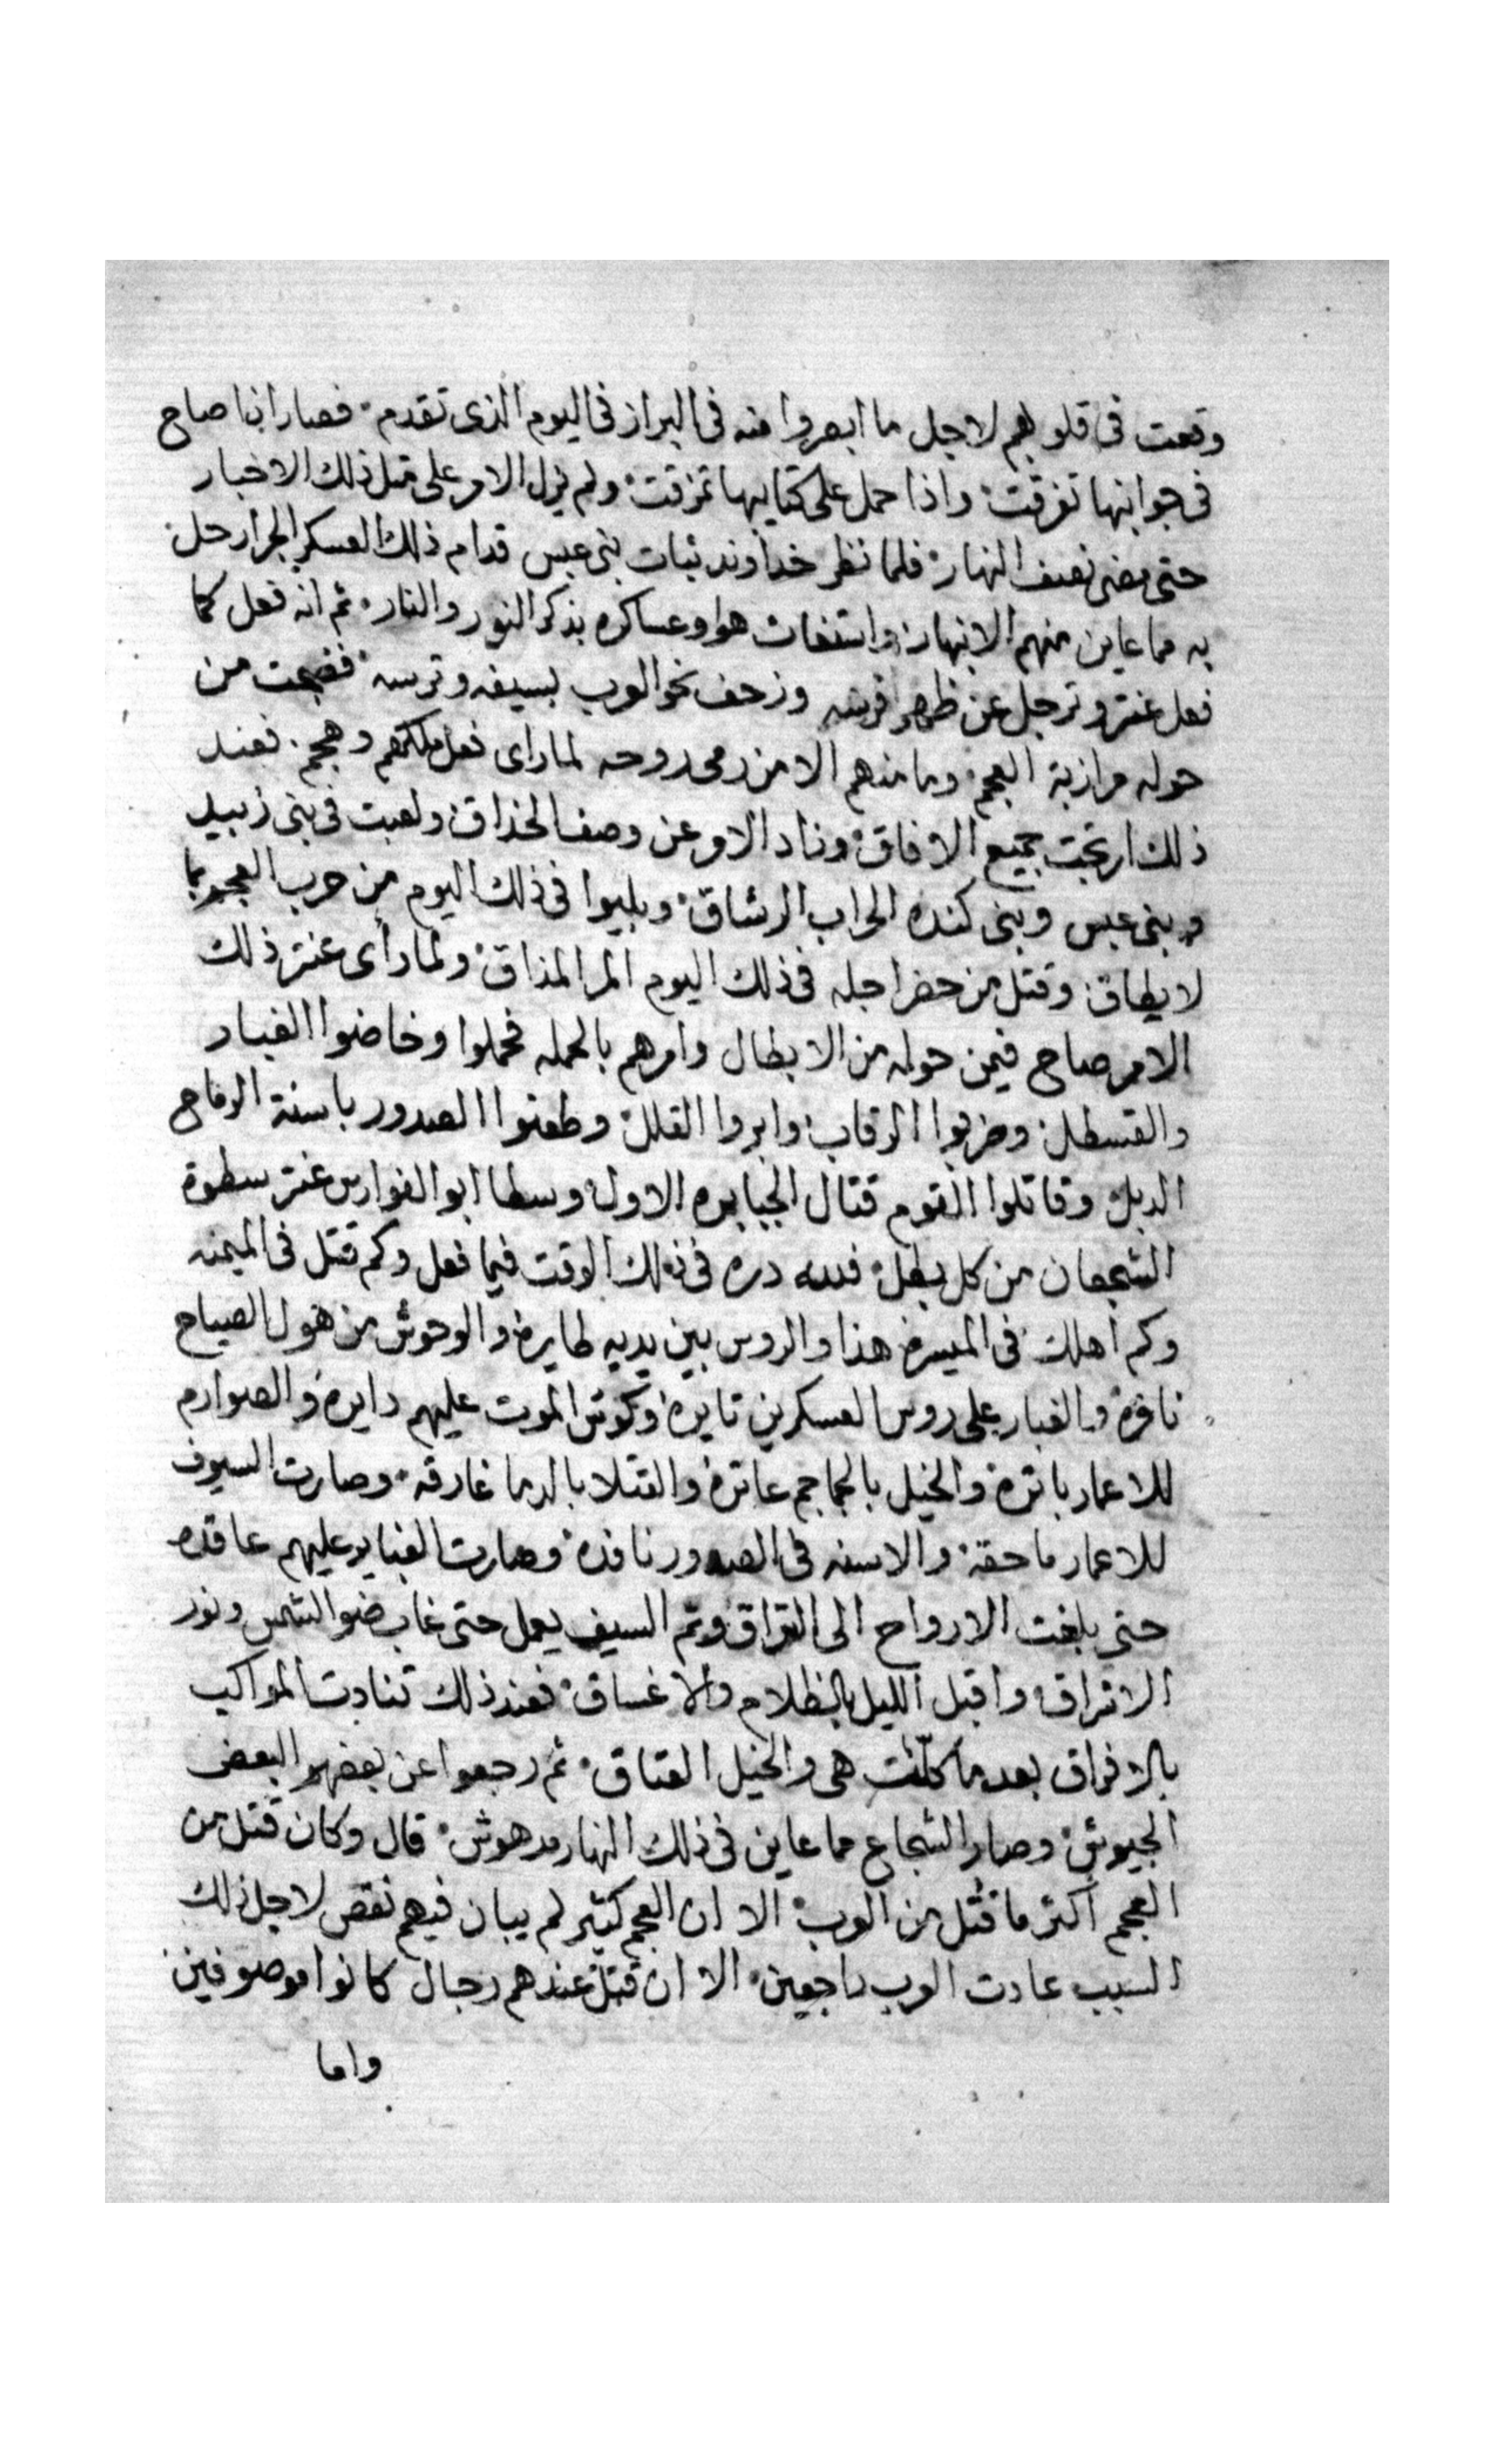 وقعت فى قلوبهم لاجل ما ابصروا منه فى البراز فى اليوم الذى تقدم فصار اذا صاح
فى جوانبها تفرقت واذا حمل على كتايبها تمزقت ولم يزل الامر على مثل ذلك الاخبار
حتى مضى نصف النهار فلما نظر خداوند ثبات بنى عبس قدام ذلك العسكر الجرار حل
به مما عاين منهم الانبهار واستغاث هو وعساكره بذكر النور والنار ثم انه فعل كما
فعل عنتر وترجل عن ظهر فرسه وزحف نحو العرب بسيفه وترسه فضجت من
حوله مرازبة العجم وما منهم الا من رمى روحه لما راى فعل ملكهم وهجم فعند
ذلك ارتجت جميع الافاق وزاد الامر عن وصف الحذاق ولعبت فى بنى زبيد
وبنى عبس وبنى كنده الحراب الرشاق وبليوا فى ذلك اليوم من حرب العجم بما
لا يطاق وقتل من حضر اجله فى ذلك اليوم المر المذاق ولما رأى عنتر ذلك
الامر صاح فيمن حوله من الابطال وامرهم بالحمله فحملوا وخاضوا الغبار
والقسطل وضربوا الرقاب وابروا القلل وطعنوا الصدور باسنة الرماح
الدبل وقاتلوا القوم قتال الجبابره الاول وسطا ابو الفوارس عنتر سطوة
الشجعان من كل بطل فلله دره فى ذلك الوقت فيما فعل وكم قتل فى الميمنه
وكم اهلك فى الميسره هذا والروس بين يديه طايره والوحوش من هول الصياح
نافره والغبار على روس العسكرين تايره وكوس الموت عليهم دايره والصوارم
للاعمار باتره والخيل بالجماجم عاتره والقتلا بالدما غارقه وصارت السيوف
للاعمار ماحقه والاسنه فى الصدور نافذه وصارت الغباير عليهم عاقده
حتى بلغت الارواح الى التراق وتم السيف يعمل حتى غاب ضو الشمس ونور
الاشراق واقبل الليل بالظلام والاغساق فعند ذلك تنادت المواكب
بالافراق بعد ما كلت هى والخيل العتاق ثم رجعوا عن بعضهم البعض
الجيوش وصار الشجاع مما عاين فى ذلك النهار مدهوش قال وكان قتل من
العجم اكثر ما قتل من العرب الا ان العجم كتير لم يبان فيهم نقص لاجل ذلك
السبب عادت العرب راجعين الا ان قتل عندهم رجال كانوا موصوفين
واما